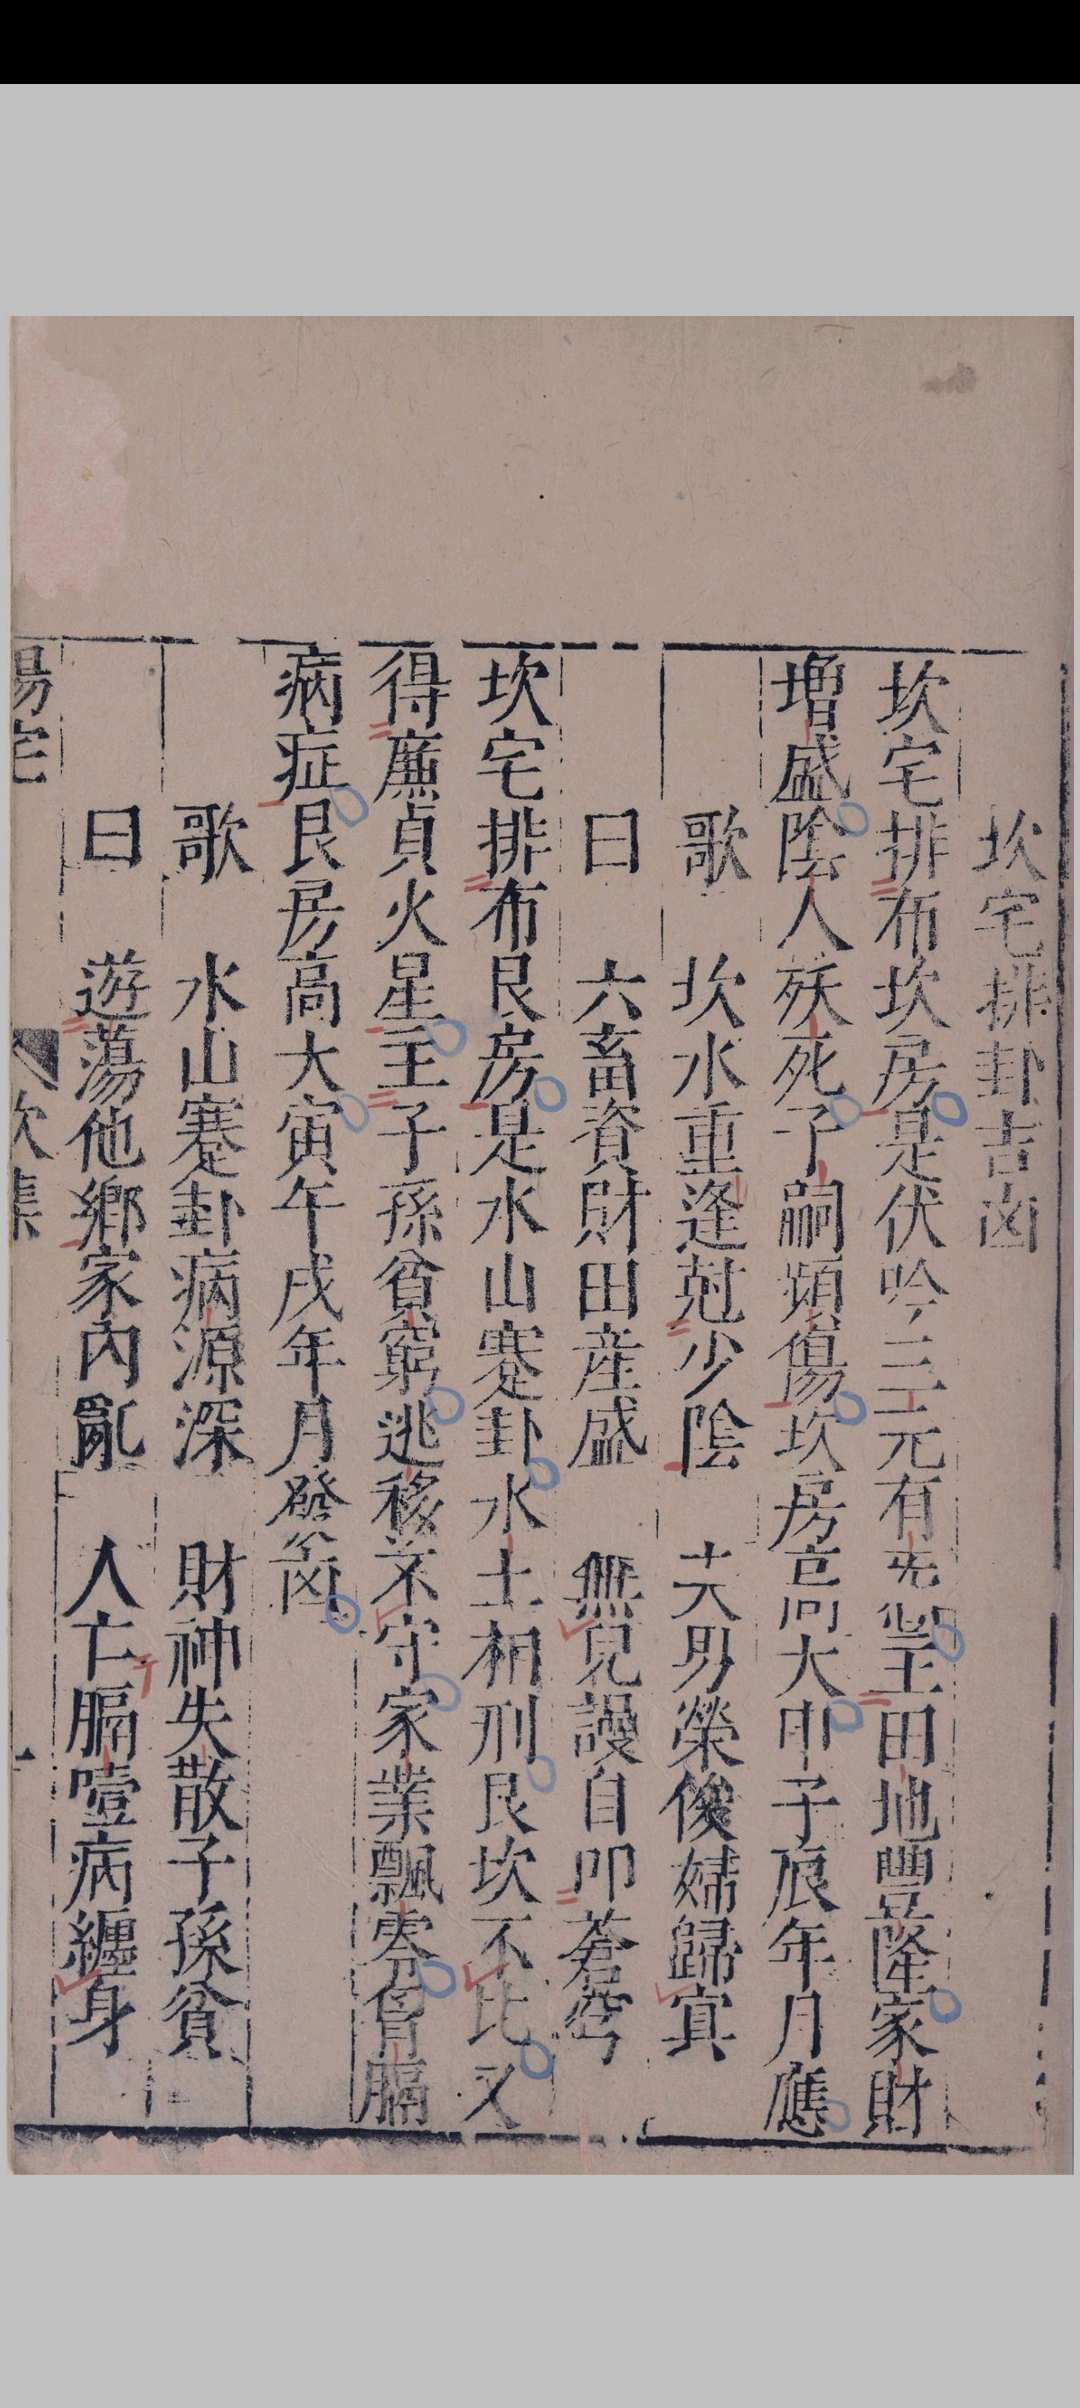 坎宅排卦吉凶
坎宅排布坎房是伏吟三元有氣王田地豐隆家財
增盛陰人殀死子嗣頻傷坎房高大申子辰年月應
歌 坎水重逢尅少陰 夫男榮俊婦歸冥
曰 六畜資財田産盛 無兒謾自叩蒼穹
坎宅排布艮房是水山蹇卦水土相刑艮坎不比又
得廉貞火星主子孫貧窮逃移不守家業飄零肓膈
病症艮房高大寅午戌年月發凶
歌 水山蹇卦病源深 財神失散子孫貧
曰 遊蕩他鄉家內亂 人亡膈噎病纏身
陽宅 坎集